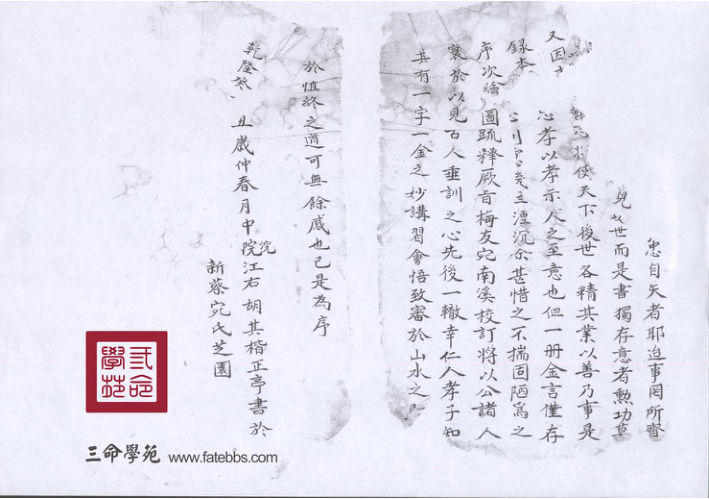 忠自矢者耶迨事罔所齊
見女世而是書獨存意者勲功莫
使天下後世各精其業以善乃事是
心孝以孝示人之至意也但一册金言僅存
又因
録本主湮沉余甚惜之不揣固陋爲之
序次繪圖疏釋厥旨梅友宛南溪校訂將以公諸人
寰於以見古人垂訓之心先後一轍幸仁人孝子知
其有一字一金之妙講習會悟致審於山水之
於慎終之道可無餘感也已是為序
乾隆
丑歲仲春月中院江右胡其楷正亭書於
院
新蔡宛氏芝園
三命學苑
三命學苑 www.fatebbs.com